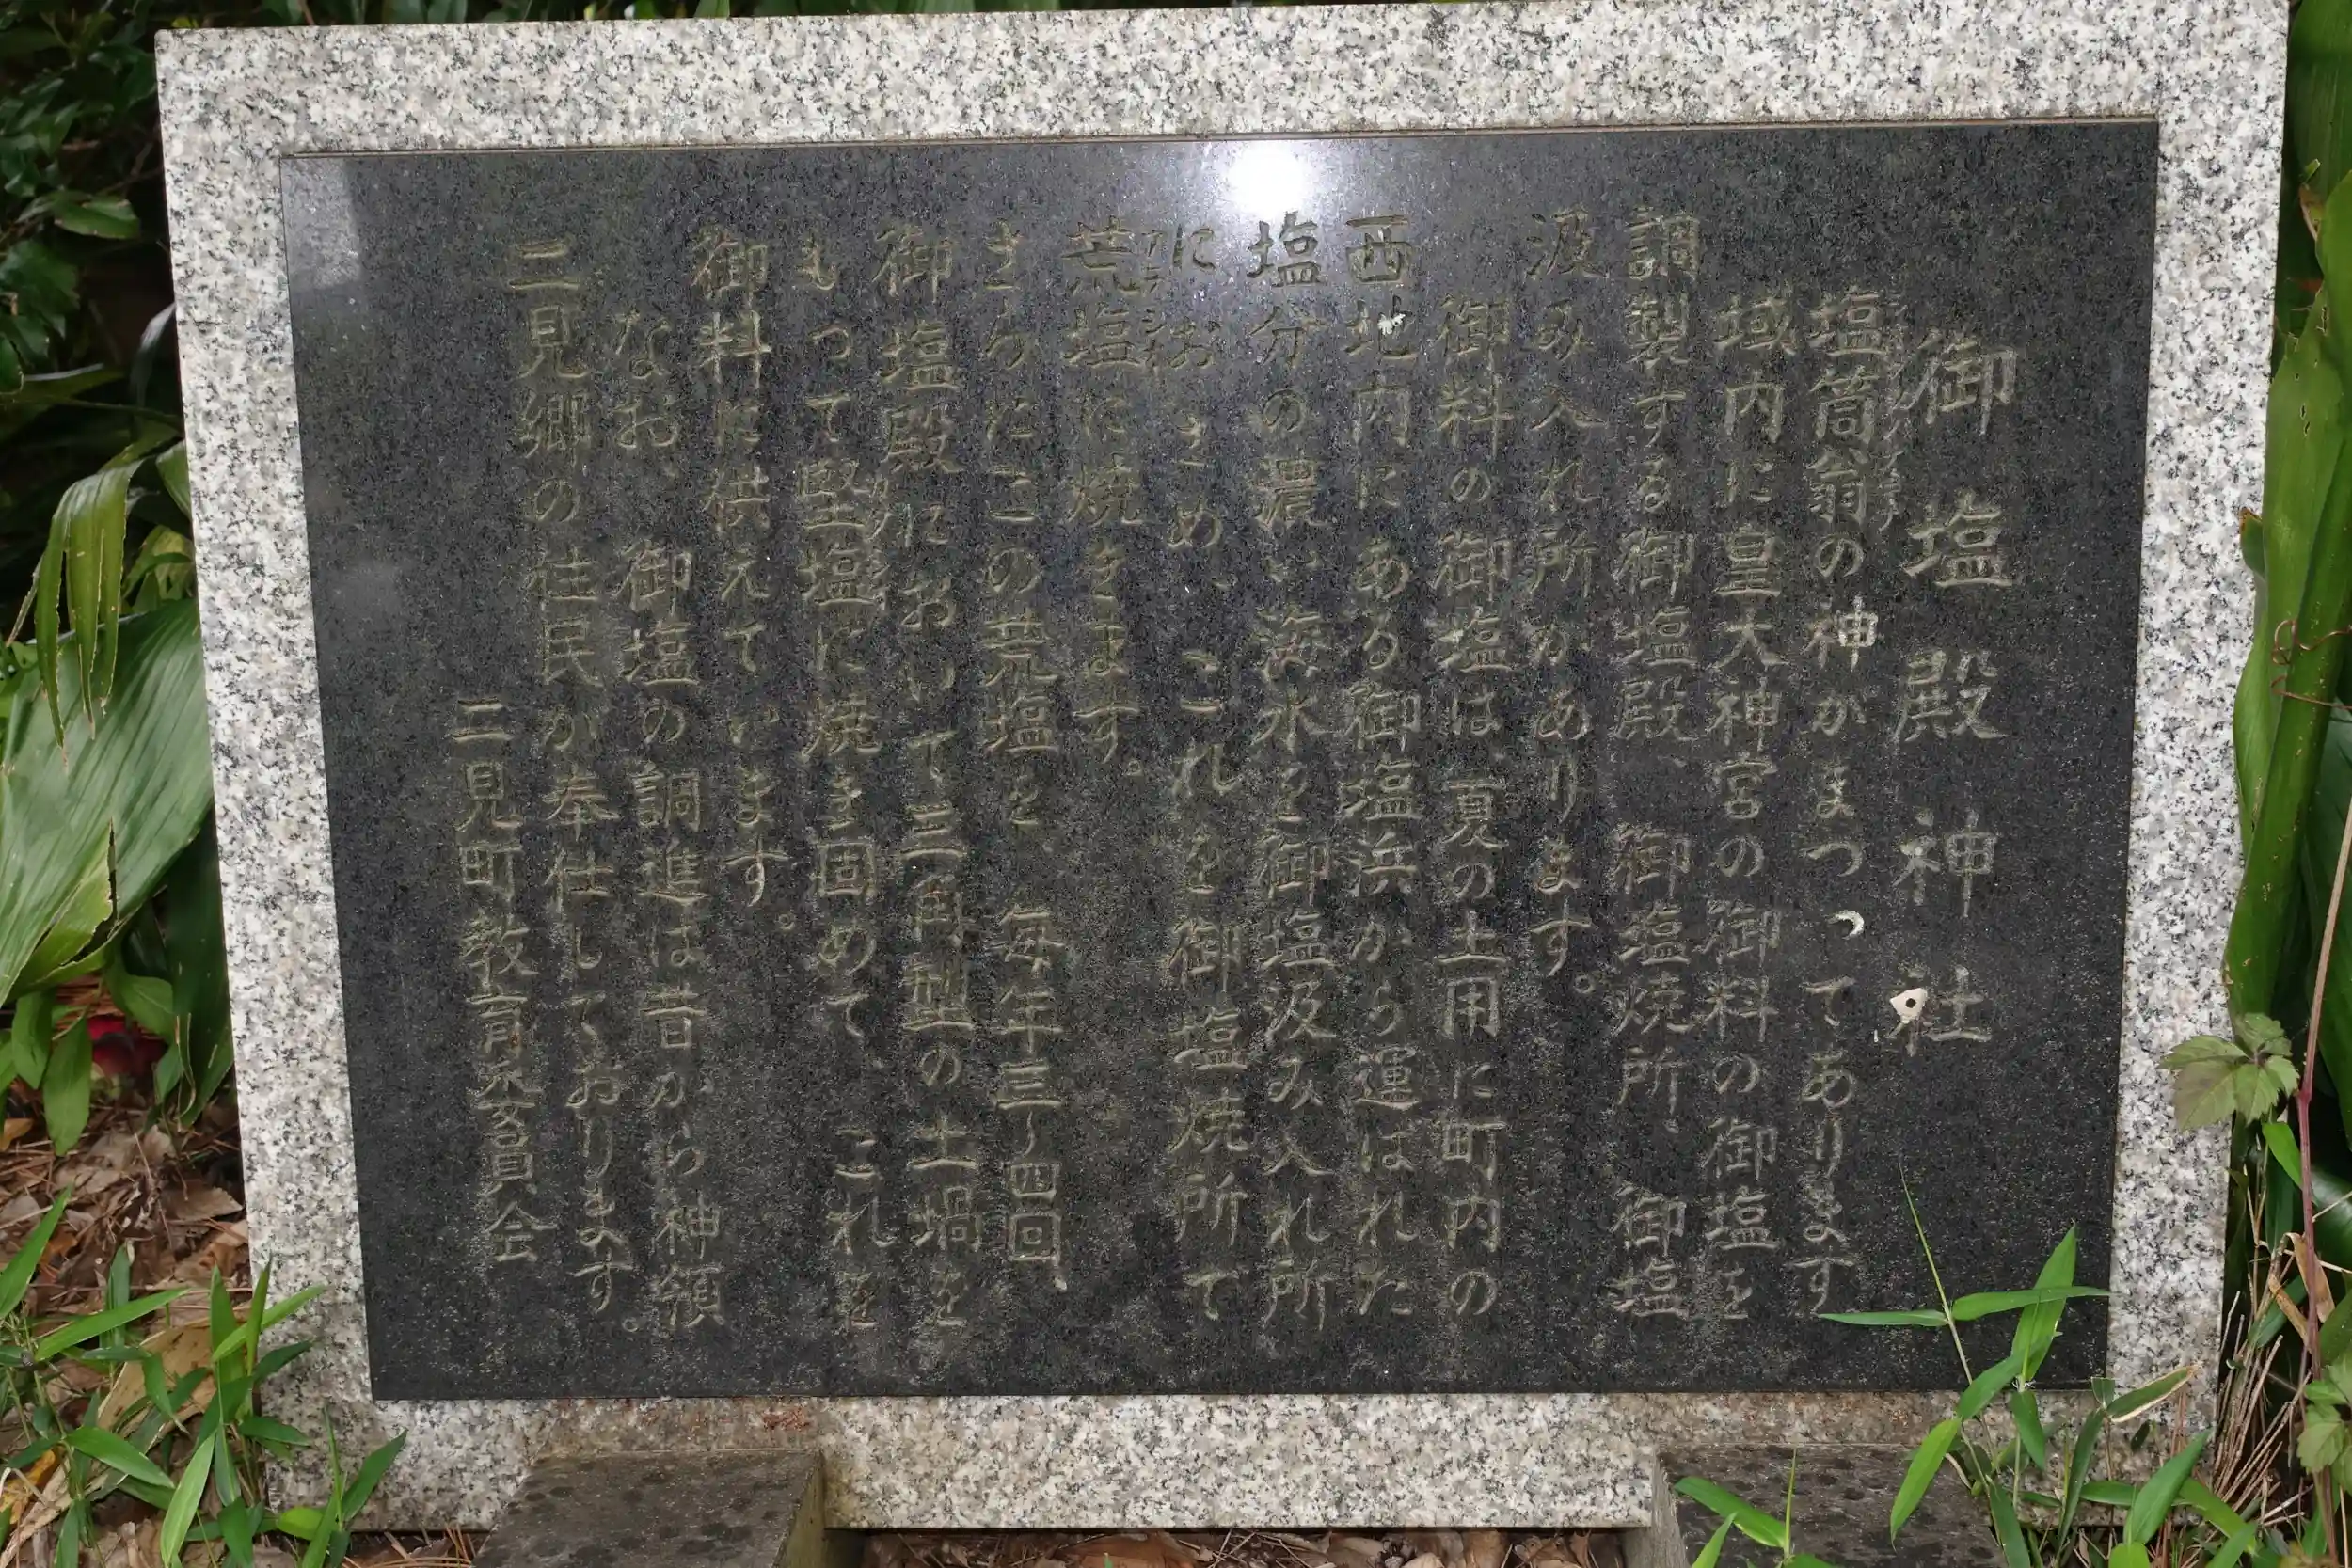 御塩殿神社
塩筒翁の神がまつってあります
域内に皇大神宮の御料の御塩を
調製する御塩殿、御塩焼所、御塩
汲み入れ所があります。
御料の御塩は、夏の土用に町内の
西地内にある御塩浜から運ばれた
塩分の濃い海水を御塩汲み入れ所
におさめ、これを御塩焼所で
荒塩に焼きます。
さらにこの荒塩を毎年三〜四回、
御塩殿において三角型の土堝を
もって堅塩に焼き固めて、これを
御料に供えています。
なお、御塩の調進は昔から神領
二見郷の住民が奉仕しております。
二見町教育委員会